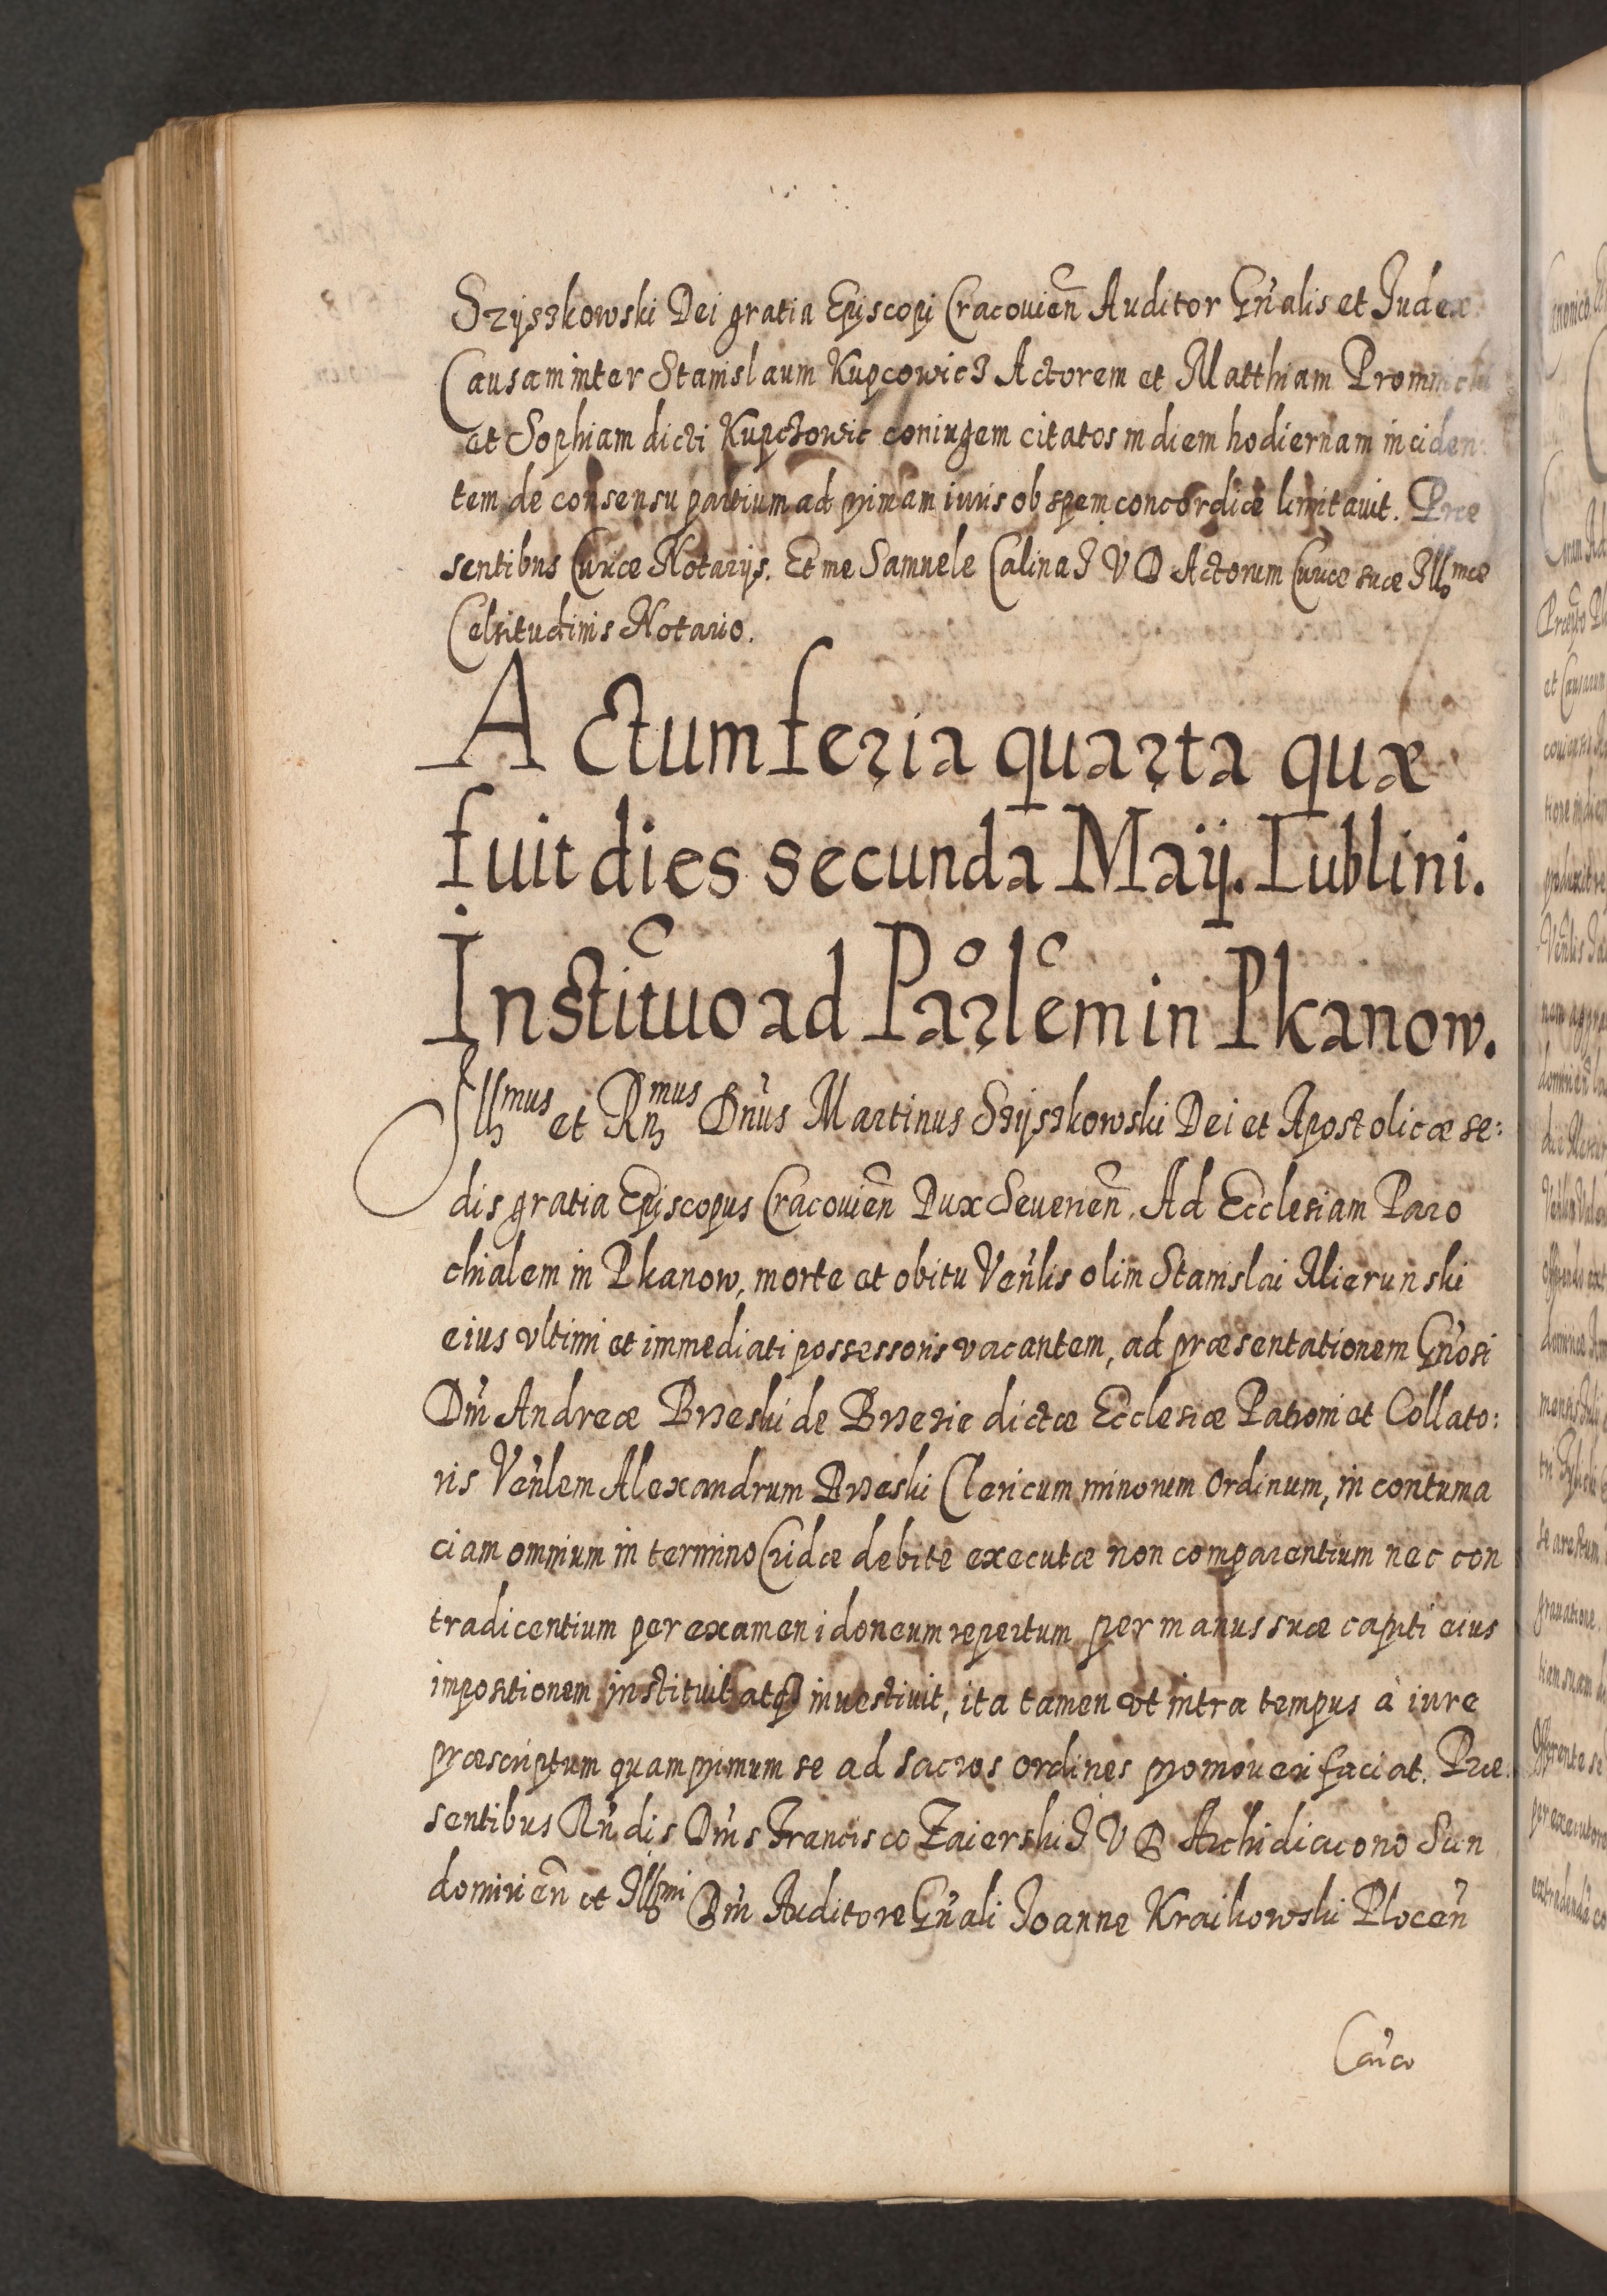 Szyszkowski Dei gratia Episcopi Cracouien̄ Auditor Gn̄alis et Judex
Causam inter Stanislaum Kupcowicz Actorem et Matthiam
et Sophiam dicti Kupczowic coniugem citatos in diem hodiernam inciden:
tem de consensu partium ad primam iuris ob spem concordiæ limitauit. Præ
sentibus Curiæ Notarijs. Et me Samuele Calina J V D Actorum Curiæ suæ Illmæ
Celsitudinis Notario.
Actum feria quarta quæ
fuit dies secunda Maij. Lublini.
Institūo ad Parlem̄ in Pkanow.
Illmus et Rnmus Dn̄us Martinus Szyszkowski Dei et Apostolicæ se:
dis gratia Episcopus Cracouien̄ Dux Seuerien̄. Ad Ecclesiam Paro
chialem in Pkanow, morte et obitu Ven̄lis olim Stanislai Mierunski
eius vltimi et immediati possessoris vacantem, ad præsentationem Gn̄osi
Dn̄i Andreæ Brzeski de Brzezie dictæ Ecclesiæ Patroni et Collato:
ris Ven̄lem Alexandrum Brzeski Clericum minorum ordinum, in contuma
ciam omnium in termino Cridæ debite executæ non comparentium nec con
tradicentium per examen idoneum repertum per manus suæ capiti eius
impositionem instituit atq3 inuestiuit, ita tamen vt intra tempus à iure
præscriptum quamprimum se ad sacros ordines promoueri faciat. Præ
sentibus Rn̄dis Dn̄is Francisco Zaierski J V D Archidiacono San
domirien̄ et Illmi Dn̄i Auditore Gn̄ali Joanne Kraikowski Plocen̄
Can̄co